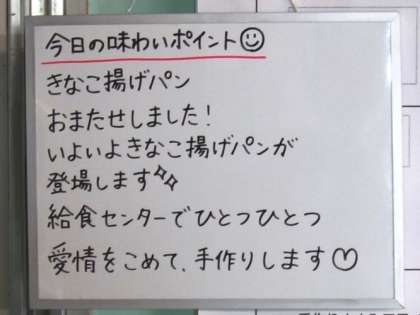 今日の味わいポイント☺
きなこ揚げパン
おまたせしました！
いよいよきなこ揚げパンが
登場します✨
給食センターでひとつひとつ
愛情をこめて、手作りします♡